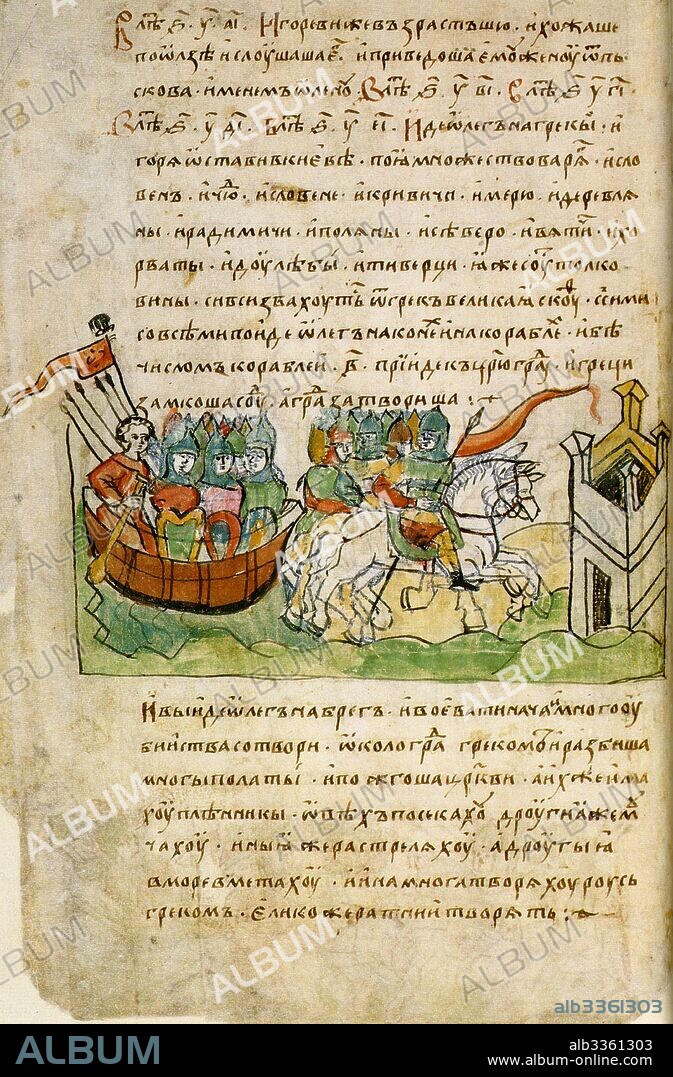 В лѣт҃ ҂s҃ . у҃ . аі҃ . Игореви же възрастъшю . и хожаше
по ѡлзѣ и слоушаша ег҃ . и приведоша емоу женоу ѿ пь
скова . именемъ ѡленоу . В лѣт҃ ҂s҃ . у҃ . ві҃ . В лѣт҃ ҂s҃ у҃ гі҃
В лѣт҃ ҂s҃ . у҃ ді҃ . В лѣт҃ ҂s҃ . у҃ еі҃ . Иде ѡлегъ на грекы . и
горя ѡставив киевѣ . поꙗ множество варяг . и сло
венъ . и чюд . и словене . и кривичи . и мерю . и деревля
ны . и радимичи . и поляны . и сѣверо . и вятичи . и хо
рваты . и доулѣбы . и тиверци . ꙗже соуть толко
вины . си вси звахоуть ѿ грекъ великаꙗ скоуф . с сими
со всѣми поиде ѡлегъ на конех и на кораблех . и бѣ
числомъ кораблеи . в҃ . прїиде къ ц҃рюград . и греци
замкоша соуд . а град затвориша :
И выиде ѡлегъ на брегъ . и воевати нача . и много оу
биїства сотвори . ѡколо града грекомъ . и разбиша
многы полаты . и пожгоша ц҃ркви . а их же има
хоу плѣнникы . ѡвѣхъ посекахоу дроугиꙗ же м
чахоу . иныꙗ же растреляхоу . а дроугыꙗ
в море вметахоу . и ина многа творяхоу роусь
греком . елико же ратнии творять :
ALBUM
alb3361303
ALBUM
alb3361303
www.album-online.com